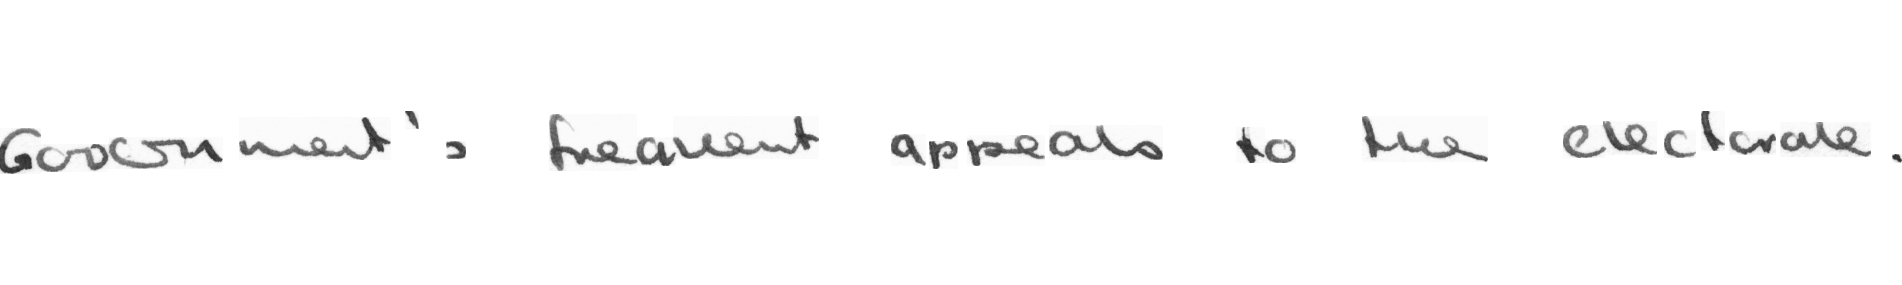 Government's frequent appeals to the electorate.